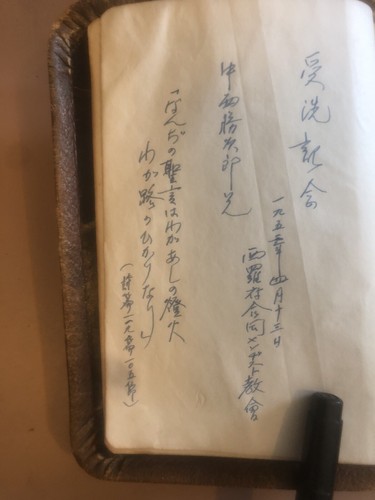 受洗記念
四月十三日
西羅府合同メソヂスト教會
中西勝次郎兄
「なんぢの聖言はわがあしの燈火
わが路のひかりなり」
(詩篇一一九篇一〇五節)